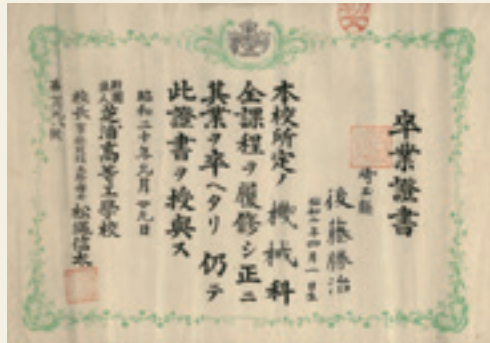 卒業證書
埼玉縣
後藤勝治
昭和二年四月一日生
本校所定ノ機械科
全課程ヲ履修シ正ニ
其業ヲ卒ヘタリ仍テ
此證書ヲ授與ス
昭和二十年九月廿九日
財團法人芝浦高等工學校
校長
松縄信太